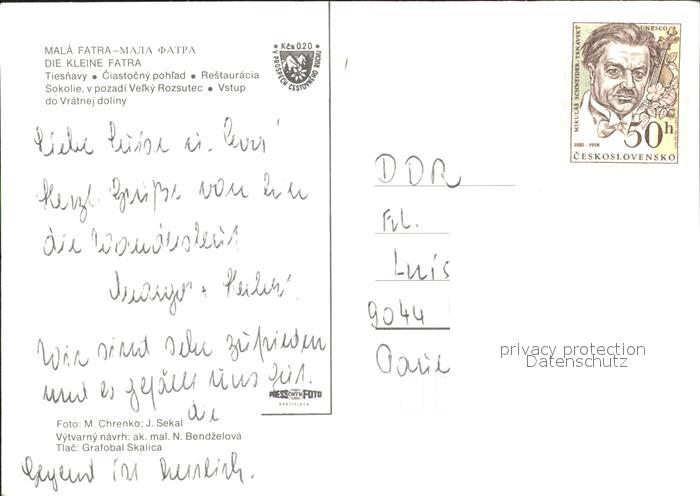 MALÁ FATRA – МАЛА ФАТРА
DIE KLEINE FATRA
Tiesňavy • Čiastočný pohľad • Reštaurácia
Sokolie, v pozadí Veľký Rozsutec • Vstup
do Vrátnej doliny
Liebe Luise u.
Herzl. Grüße von hier
die Wandersleut
Margot +
Wir sind sehr zufrieden
und es gefällt uns gut.
die
Gegend ist herrlich.
PRESSFOTO
BRATISLAVA
Foto: M. Chrenko; J. Sekal
Výtvarný návrh: ak. mal. N. Bendželová
Tlač: Grafobal Skalica
Kčs 0.20
V PROSPECH CESTOVNÉHO RUCHU
MIKULÁŠ SCHNEIDER-TRNAVSKÝ
UNESCO
1881-1958
50h
ČESKOSLOVENSKO
DDR
Frl.
Luis
9044
privacy protection
Datenschutz